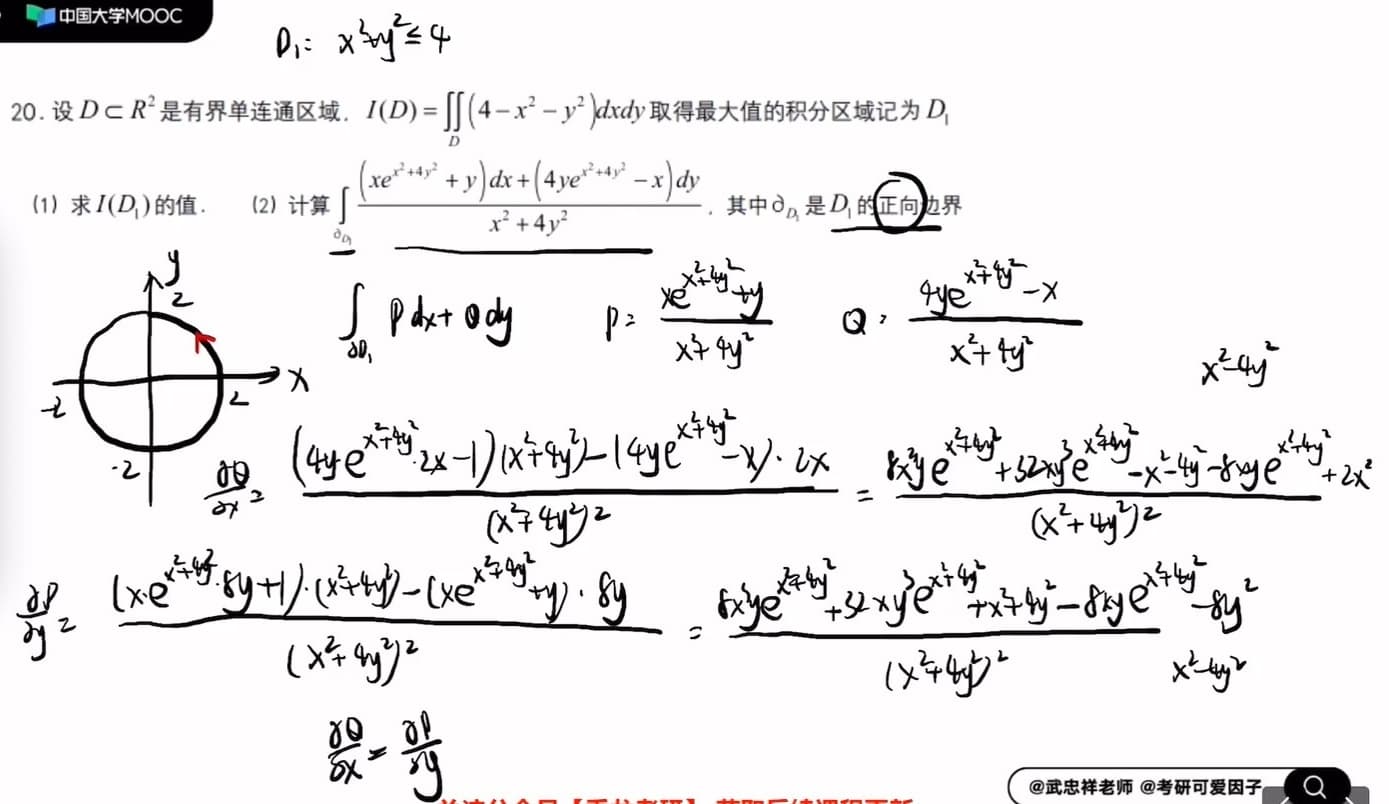 中国大学MOOC
D₁: x²+y²≤4
20.设 D⊂R² 是有界单连通区域, I(D)=∬_D(4−x²−y²)dxdy 取得最大值的积分区域记为 D₁
(1) 求 I(D₁) 的值. (2) 计算 ∫_{∂_{D₁}} ((xe^{x²+4y²}+y)dx+(4ye^{x²+4y²}−x)dy)/(x²+4y²), 其中 ∂_{D₁} 是 D₁ 的正向边界
y
2
x
-2
2
-2
∫_{∂D₁} Pdx+Qdy P= (xe^{x²+4y²}+y)/(x²+4y²) Q= (4ye^{x²+4y²}−x)/(x²+4y²)
x²−4y²
∂Q/∂x = ((4ye^{x²+4y²}·2x−1)(x²+4y²)−(4ye^{x²+4y²}−x)·2x)/(x²+4y²)² = (8x³ye^{x²+4y²}+32xy³e^{x²+4y²}−x²−4y²−8xye^{x²+4y²}+2x²)/(x²+4y²)²
∂P/∂y = ((x·e^{x²+4y²}·8y+1)·(x²+4y²)−(xe^{x²+4y²}+y)·8y)/(x²+4y²)² = (8x³ye^{x²+4y²}+32xy³e^{x²+4y²}+x²+4y²−8xye^{x²+4y²}−8y²)/(x²+4y²)²
x²−4y²
∂Q/∂x = ∂P/∂y
@武忠祥老师 @考研可爱因子